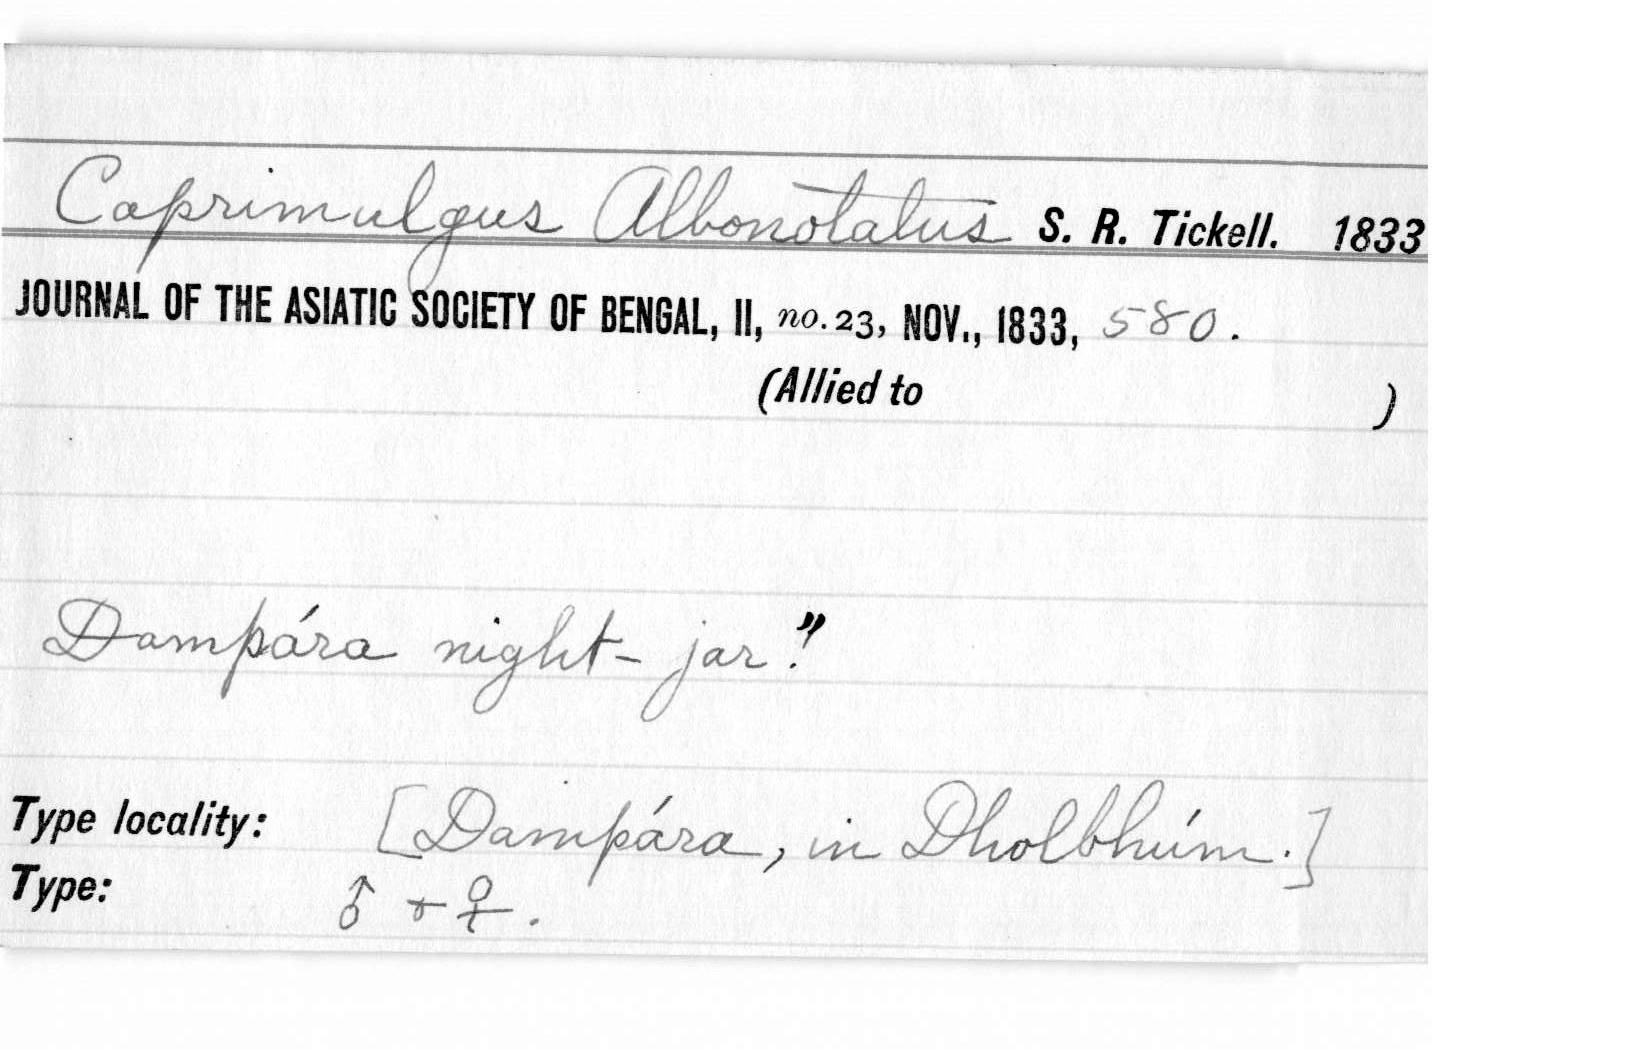 Caprimulgus Albonotatus S. R. Tickell. 1833
JOURNAL OF THE ASIATIC SOCIETY OF BENGAL, II, no. 23, NOV., 1833, 580.
(Allied to )
Dampára night-jar."
Type locality: [Dampára, in Dholbhúm.]
Type: ♂ + ♀.